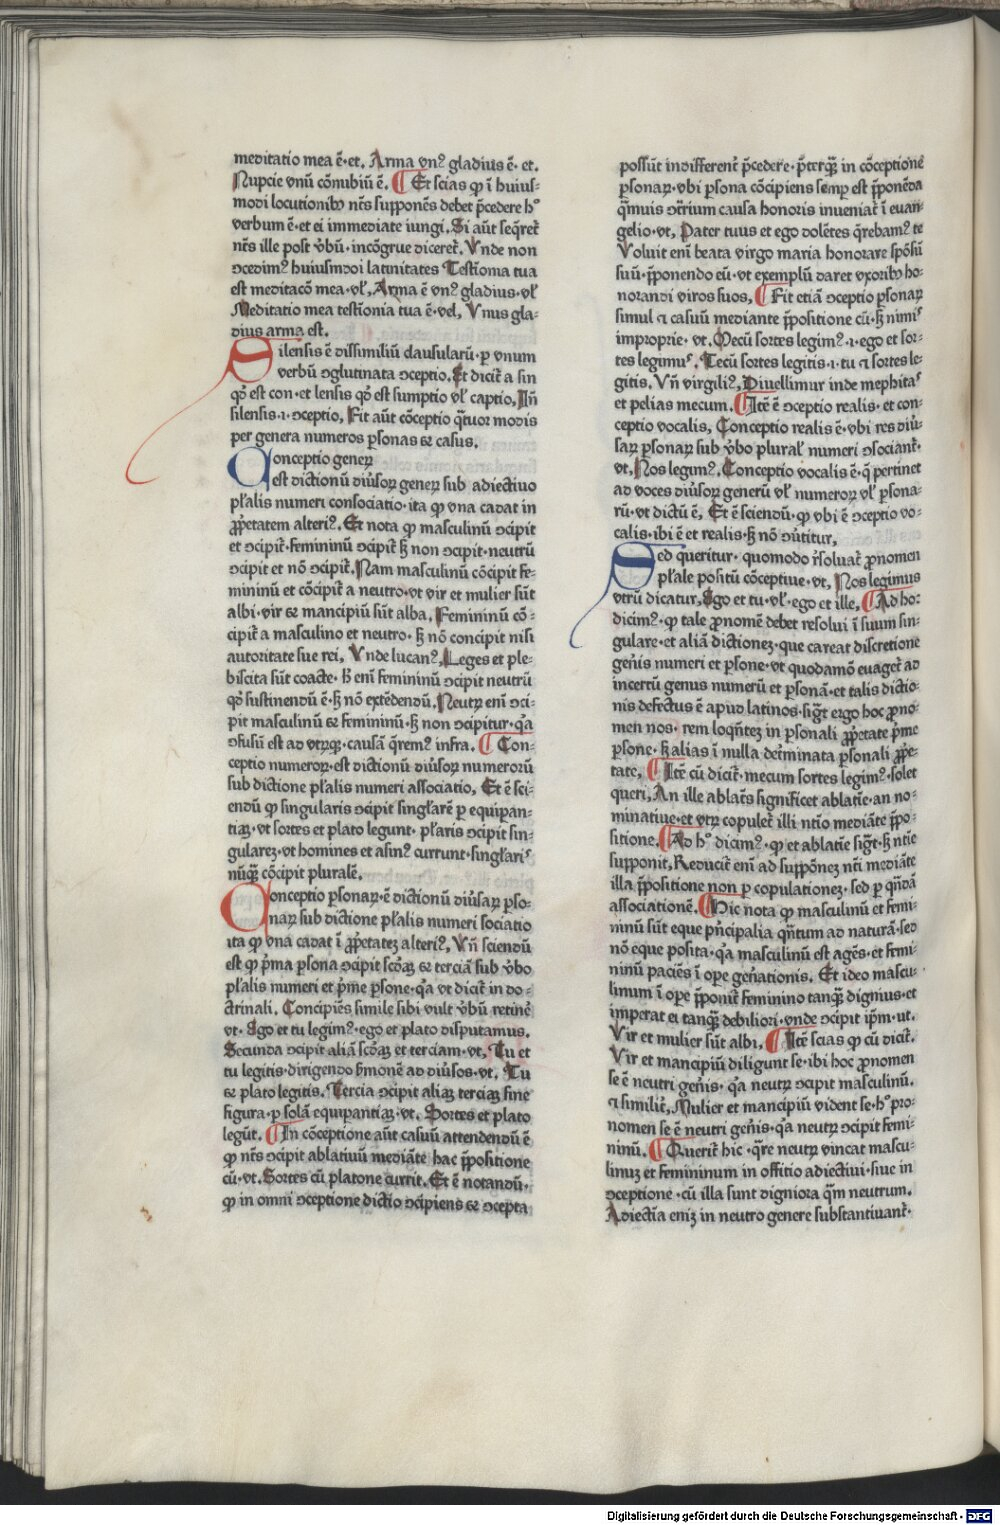 meditatio mea ē·et. Arma vnꝰ gladius ē· et.
Nupcie vnū cōnubiū ē. ¶ Et scias ꝙ ī huius-
modi locutionibꝰ nr̄s supponēs debet p̄cedere hͦ
verbum ē·et ei immediate iungi. Si aūt seqͣret̄
nr̄s ille post v̄bū· incōgrue diceret̄. Vnde non
ↄcedimꝰ huiusmodi latinitates Testīoma tua
est meditacō mea·vl̄, Arma ē vnꝰ gladius·vl̄
Meditatio mea testīonia tua ē·vel, Vnus gla-
dius arma est.
Silensis ē dissimiliū clausularū· ꝑ vnum
verbū ↄglutinata ↄceptio. Et dicit̄ a sin
qꝺ̄ est con·et lensis qꝺ̄ est sumptio vl̄ captio. Iñ
silensis·i·ↄceptio, Fit aūt cōceptio qͣtuor modis
per genera numeros ꝑsonas ⁊ casus.
Conceptio generꝝ
est dictionū diūsoꝝ generꝝ sub adiectiuo
pl̄alis numeri consociatio·ita ꝙ vna cadat in
ꝓp̄etatem alteriꝰ. Et nota ꝙ masculinū ↄcipit
et ↄcipit̄·femininū ↄcipit̄ sꝫ non ↄcipit·neutrū
ↄcipit et nō ↄcipit̄. Nam masculinū cōcipit fe-
mininū et cōcipit̄ a neutro·vt vir et mulier sūt
albi·vir ⁊ mancipiū sūt alba. Femininū cō-
cipit̄ a masculino et neutro· sꝫ nō concipit nisi
autoritate sue rei, Vnde lucanꝰ, Leges et ple-
biscita sūt coacte· hꝫ enī femininū ↄcipit neutrū
qꝺ̄ sustinendū ē·sꝫ nō extēdendū. Neutꝝ enī ↄci-
pit masculinū ⁊ femininū·sꝫ non ↄcipitur·qͣa
ↄfusū est ad vtrūqꝫ·causā qͣremꝰ infra. ¶ Con-
ceptio numeroꝝ·est dictionū diūsoꝝ numerorū
sub dictione pl̄alis numeri associatio, Et ē sci-
endū ꝙ singularis ↄcipit singl̄arē ꝑ equipan-
tiaꝫ·vt sortes et plato legunt· pl̄aris ↄcipit sin-
gularez·vt homines et asinꝰ currunt·singl̄ariꝰ
nūqͣꝫ cōcipit pluralē.
Conceptio ꝑsonaꝝ·ē dictionū diūsaꝝ ꝑso-
naꝝ sub dictione pl̄alis numeri sociatio
ita ꝙ vna cadat ī ꝓp̄etatez alteriꝰ, Vñ sciendū
est ꝙ p̄ma ꝑsona ↄcipit scōaꝫ ⁊ terciā sub v̄bo
pl̄alis numeri et p̄me ꝑsone·qͣa vt dicit̄ in do-
ctrinali. Concipiēs simile sibi vult v̄bū retinē
vt· Ego et tu legimꝰ·ego et plato disputamus.
Secunda ↄcipit aliā scōaꝫ et terciam·vt, Tu et
tu legitis·dirigendo ẜmonē ad diūsos·vt. Tu
⁊ plato legitis. Tercia ↄcipit aliaꝫ terciaꝫ sine
figura· ꝑ solā equipantiaꝫ·vt. Sortes et plato
legūt. ¶ In cōceptione aūt casuū attendendū ē
ꝙ nr̄s ↄcipit ablatiuū mediāte hac p̄positione
cū·vt. Sortes cū platone currit. Et ē notandū·
ꝙ in omni ↄceptione dictio ↄcipiens ⁊ ↄcepta
possūt indifferent̄ p̄cedere· p̄terqͣꝫ in cōceptione
ꝑsonaꝝ·vbi ꝑsona cōcipiens semꝑ est p̄ponēda
qͣmuis ↄtrium causa honoris inueniat̄ ī euan-
gelio·vt, Pater tuus et ego dolētes qͣrebamꝰ te
Voluit enī beata virgo maria honorare spōsū
suū· p̄ponendo eū·vt exemplū daret vxoribꝰ ho-
norandi viros suos, ¶ Fit etiā ↄceptio ꝑsonaꝝ
simul ⁊ casuū mediante p̄positione cū·sꝫ nimiꝰ
improprie· vt. Mecū sortes legimꝰ·i·ego et sor-
tes legimꝰ. Tecū sortes legitis·i·tu ⁊ sortes le-
gitis. Vñ virgiliꝰ, Diuellimur inde mephitaꝰ
et pelias mecum. ¶ Itē ē ↄceptio realis· et con-
ceptio vocalis, Conceptio realis ē·vbi res diū-
saꝝ ꝑsonaꝝ sub v̄bo plural̄ numeri ↄsociant̄·
vt, Nos legimꝰ. Conceptio vocalis ē·q̄ pertinet
ad voces diūsoꝝ generū vl̄ numeroꝝ vl̄ ꝑsona-
rū·vt dictū ē, Et ē sciendū·ꝙ vbi ē ↄceptio vo-
calis·ibi ē et realis·sꝫ nō ↄūtitur,
Sed queritur· quomodo r̄soluat̄ ꝓnomen
pl̄ale positū cōceptiue·vt, Nos legimus
vtrū dicatur, Ego et tu·vl̄·ego et ille, ¶ Ad hoc
dicimꝰ·ꝙ tale ꝓnomē debet resolui ī suum sin-
gulare·et aliā dictionez·que careat discretione
gen̄is numeri et ꝑsone·vt quodāmō euaget̄ ad
incertū genus numerū et ꝑsonā·et talis dictio-
nis defectus ē apud latinos·sigt̄ ergo hoc ꝓno-
men nos· rem loqn̄tez in ꝑsonali ꝓp̄etate p̄me
ꝑsone·sꝫ alias ī nulla det̄minata ꝑsonali ꝓp̄e-
tate, ¶ Itē cū dicit̄·mecum sortes legimꝰ·solet
queri, An ille ablat̄s significet ablatīe·an no-
minatiue·et vtꝝ copulet̄ illi nt̄io mediāte p̄po-
sitione. ¶ Ad hͦ dicimꝰ·ꝙ et ablatīe sigt̄·sꝫ nt̄ie
supponit, Reducit̄ enī ad suppōnez nt̄i mediāte
illa p̄positione non ꝑ copulationez·sed ꝑ qn̄dā
associationē. ¶ Hic nota ꝙ masculinū et femi-
ninū sūt eque pn̄cipalia qn̄tum ad naturā·sed
nō eque posita·qͣa masculinū est agēs·et femi-
ninū paciēs ī ope gen̄ationis. Et ideo mascu-
linum ī ope p̄ponit̄ feminino tanqͣꝫ dignius·et
imperat ei tanqͣꝫ debiliori·vnde ↄcipit ip̄m·ut.
Vir et mulier sūt albi, ¶ Itē scias ꝙ cū dicit̄.
Vir et mancipiū diligunt se·ibi hoc ꝓnomen
se ē neutri gen̄is· qͣa neutꝝ ↄcipit masculinū.
⁊ similit̄, Mulier et mancipiū vident se·hͦ pro-
nomen se ē neutri gen̄is·qͣa neutꝝ ↄcipit femi-
ninū. ¶ Querit̄ hic·qͣre neutꝝ vincat mascu-
linuꝫ et femininum in officio adiectiui·siue in
ↄceptione·cū illa sunt digniora qͣm neutrum.
Adiectīa eniꝫ in neutro genere substantiuant̄·
Digitalisierung gefördert durch die Deutsche Forschungsgemeinschaft - DFG